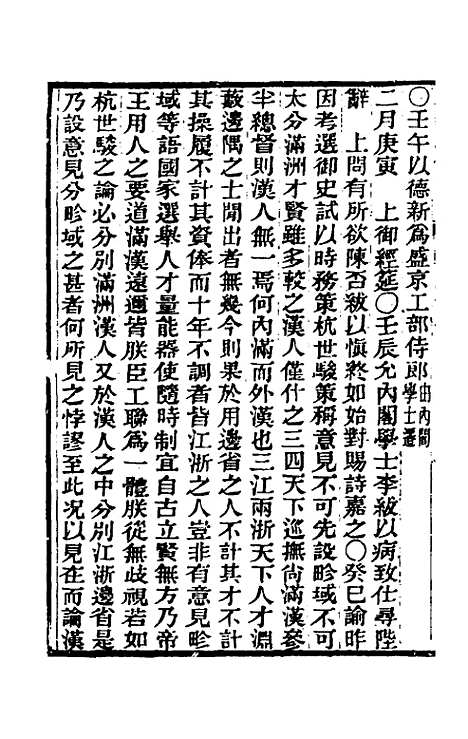 〇壬午以德新爲盛京工部侍郎由內閣學士遷
二月庚寅　上御經筵〇壬辰允內閣學士李紱以病致仕尋陛
辭　上問有所欲陳否紱以愼終如始對賜詩嘉之〇癸巳諭昨
因考選御史試以時務策杭世駿策稱意見不可先設畛域不可
太分滿洲才賢雖多較之漢人僅什之三四天下巡撫尙滿漢參
半總督則漢人無一焉何內滿而外漢也三江兩浙天下人才淵
藪邊隅之士閒出者無幾今則果於用邊省之人不計其才不計
其操履不計其資俸而十年不調者皆江浙之人豈非有意見畛
域等語國家選舉人才量能器使隨時制宜自古立賢無方乃帝
王用人之要道滿漢遠邇皆朕臣工聯爲一體朕從無歧視若如
杭世駿之論必分別滿洲漢人又於漢人之中分別江浙邊省是
乃設意見分畛域之甚者何所見之悖謬至此況以見在而論漢